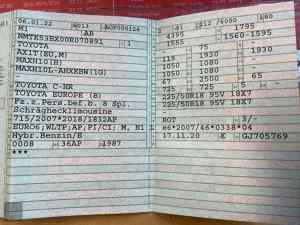 06.01.22 5013 AOY000124
M1
NMTK53BX00R070891
TOYOTA
AX1T(EU,M)
MAXH10(B)
MAXH10L-AHXEBW(1G)
-
TOYOTA C-HR
TOYOTA EUROPE (B)
Pz.z.Pers.bef.b. 8 Spl.
Schräghecklimousine
715/2007*2018/1832AP
EURO6;WLTP;AP;PI/CI; M, N1
Hybr.Benzin/E
0008 36AP 1987
***
2 01 112 /5200 180
4395 1795
1555 1560-1595
75 - 1930
1930
1050 1080 -
1050 1080 -
67 2500 65
725 725 5 -
225/50R18 95V 18X7
225/50R18 95V 18X7
-
ROT 3/-
e6*2007/46*0338*04
17.11.20 K GJ705769